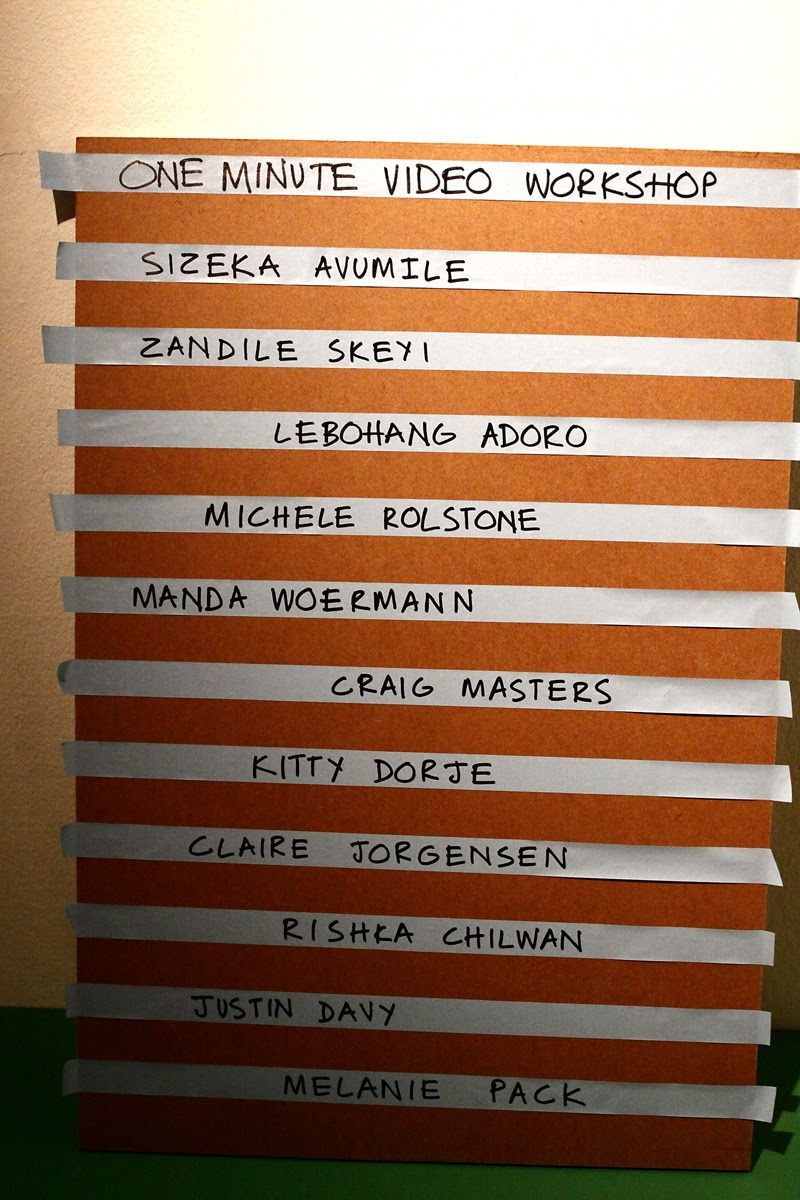 ONE MINUTE VIDEO WORKSHOP
SIZEKA AVUMILE
ZANDILE SKEYI
LEBOHANG ADORO
MICHELE ROLSTONE
MANDA WOERMANN
CRAIG MASTERS
KITTY DORJE
CLAIRE JORGENSEN
RISHKA CHILWAN
JUSTIN DAVY
MELANIE PACK